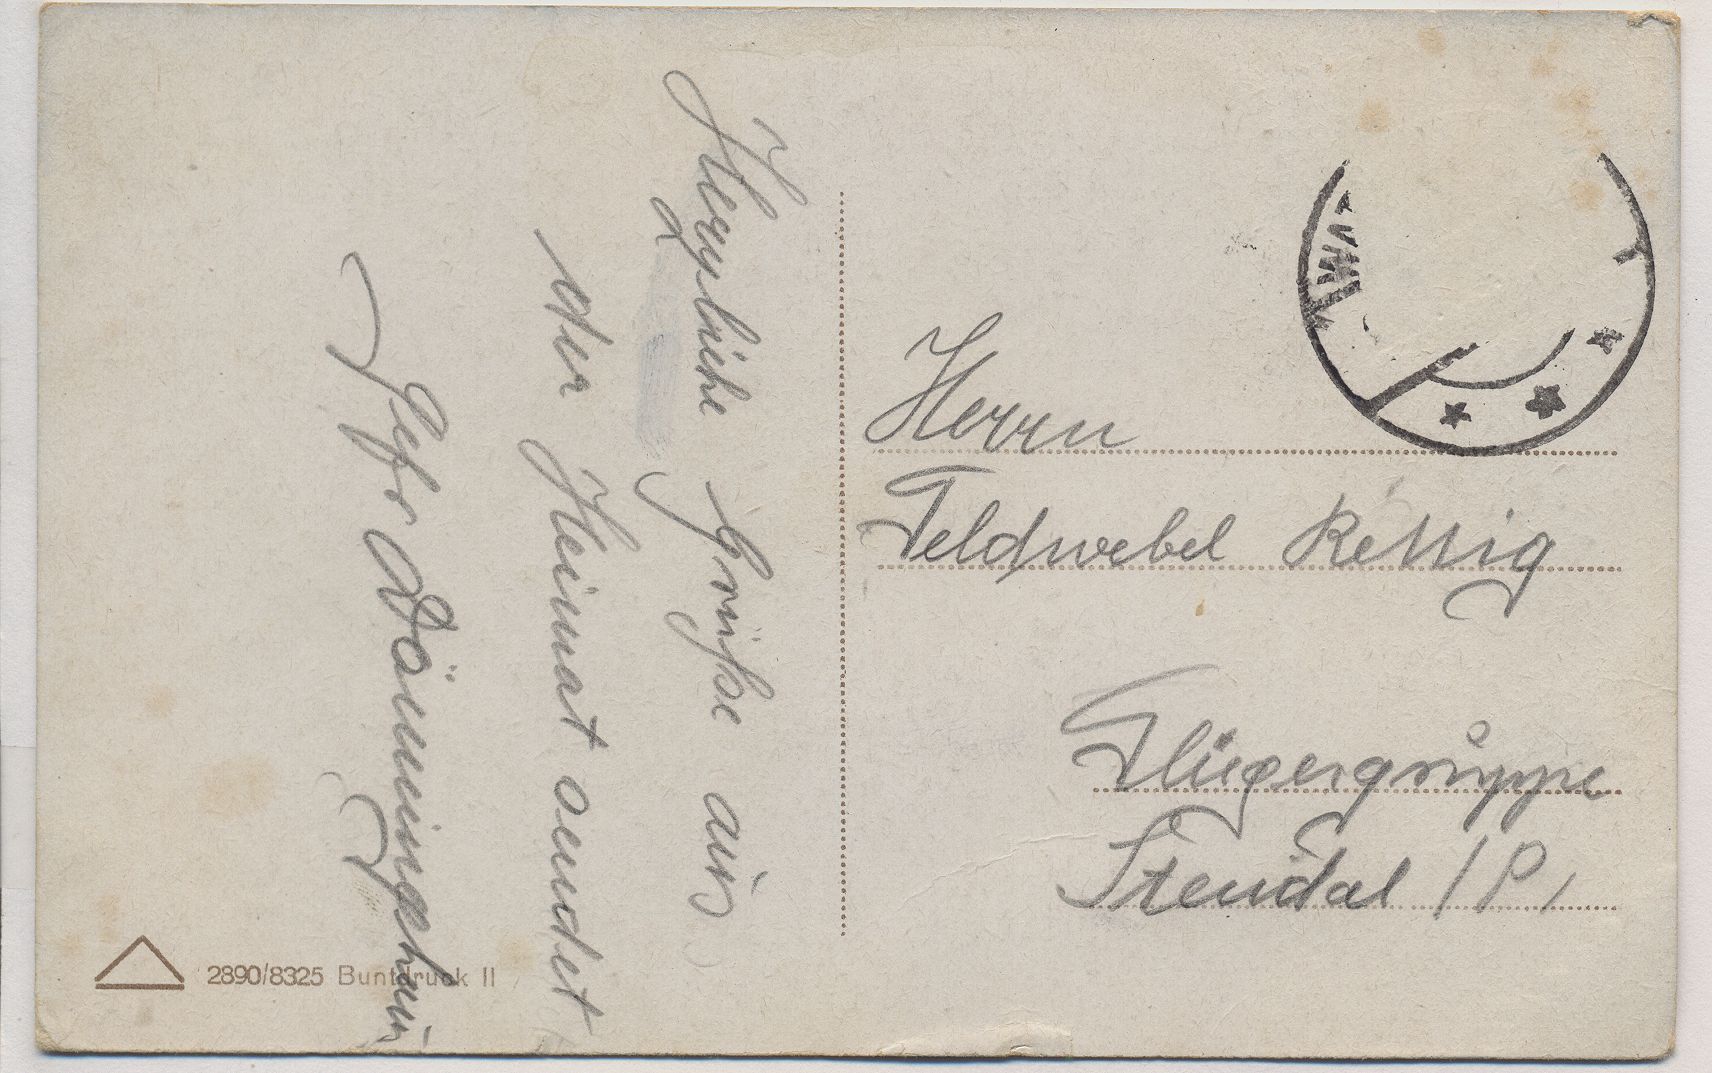 Herzliche Grüße aus
der Heimat sendet
Gefr
Herrn
Feldwebel Rettig
Fliegergruppe
Stendal / P.
2890/8325 Buntdruck II